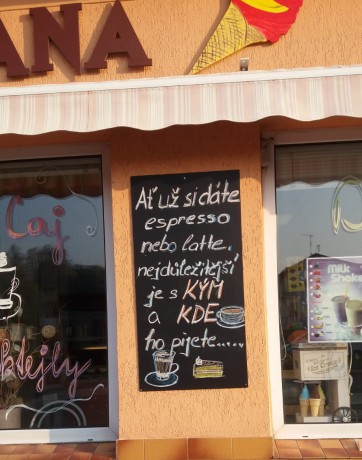 ANA
Čaj
ktejly
Ať už si dáte
espresso
nebo latte.
nejdůležitější
je s KÝM
a KDE
ho pijete......
Milk
Shake